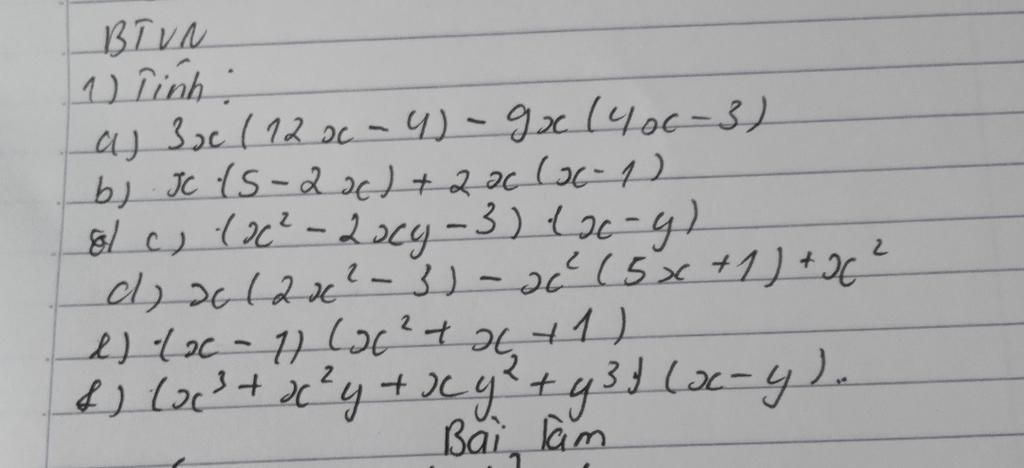 BTVN
1) Tính:
a) 3x(12x-4)-9x(4x-3)
b) x.(5-2x)+2x(x-1)
c) (x²-2xy-3).(x-y)
d) x(2x²-3)-x²(5x+1)+x²
e) (x-1)(x²+x+1)
f) (x³+x²y+xy²+y³)(x-y).
Bài làm